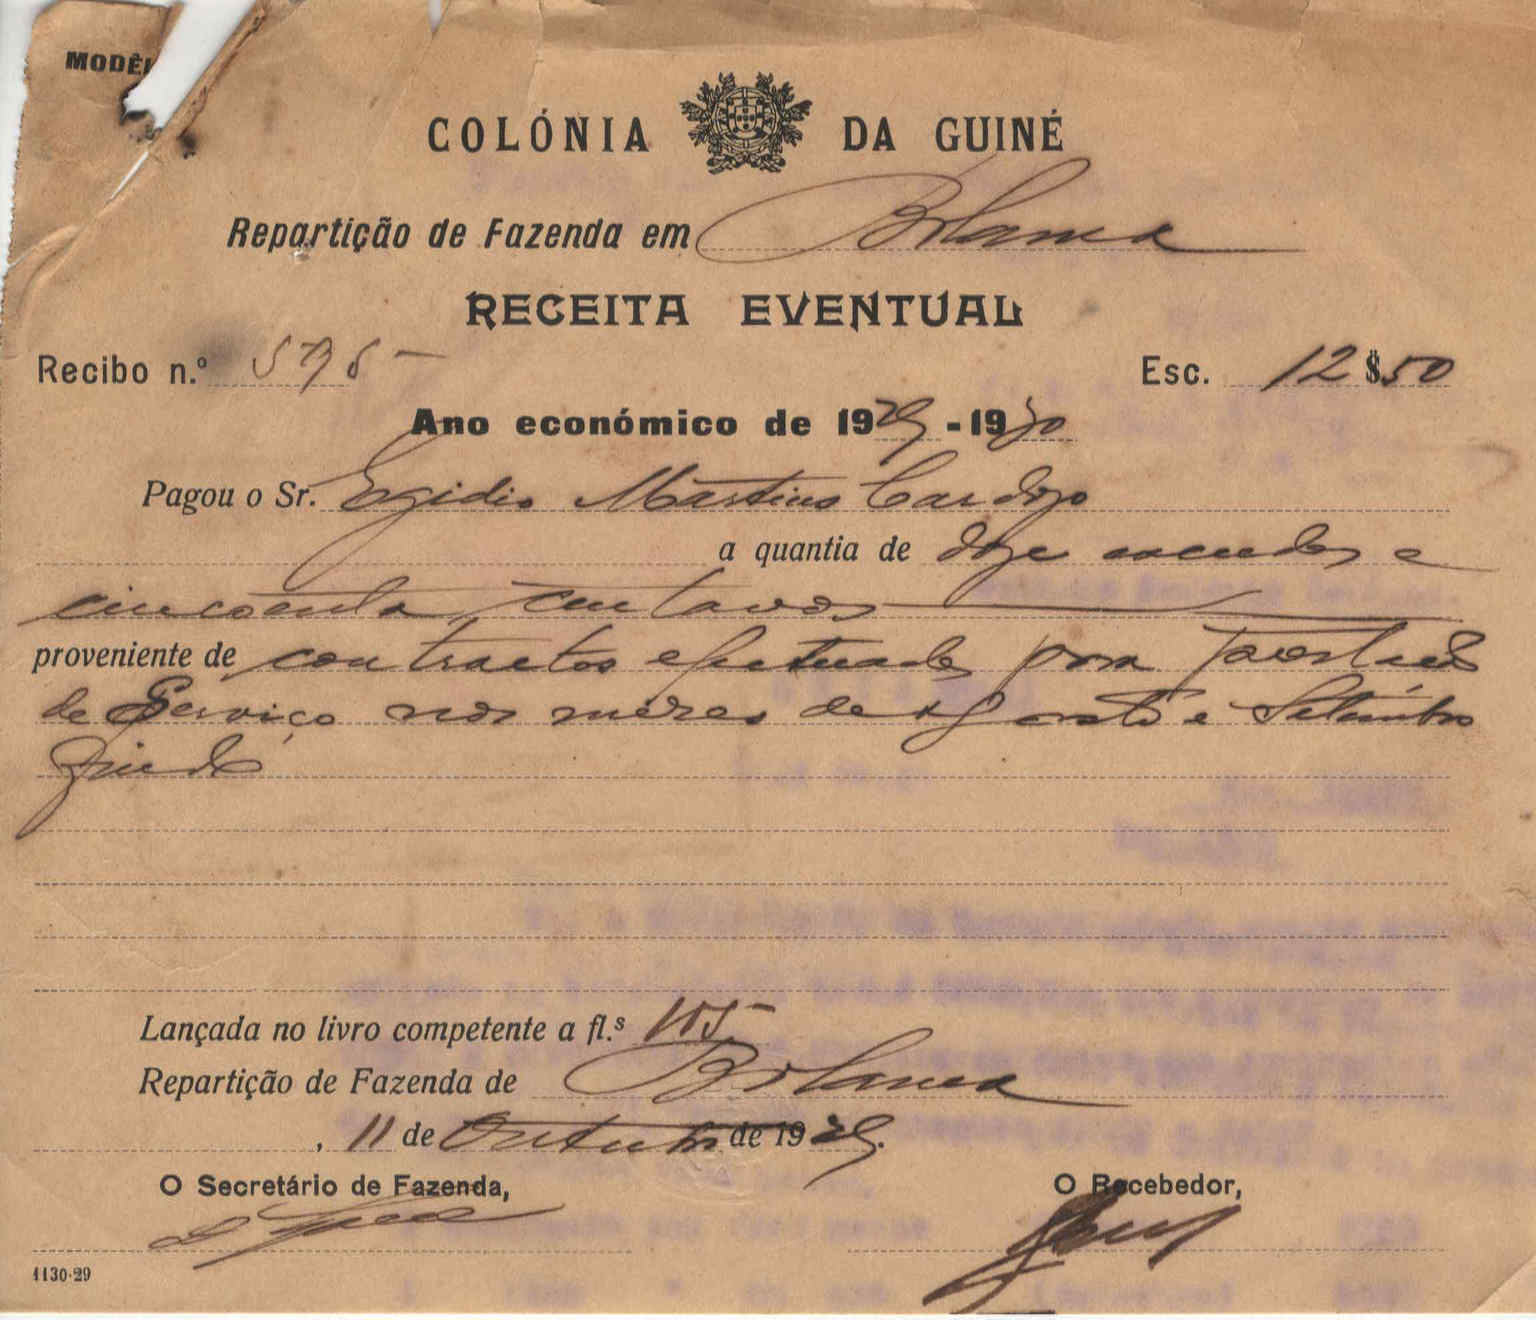 MODÊL
COLÓNIA DA GUINÉ
Repartição de Fazenda em Bolama
RECEITA EVENTUAL
Recibo n.º 595- Esc. 12$50
Ano económico de 1929-1930
Pagou o Sr. Egidio Martins Cardozo
a quantia de doze escudos e
cincoenta centavos
proveniente de contractos efectuados para prestação
de Serviço nos mezes de Agosto e Setembro
findo
Lançada no livro competente a fl.s 105-
Repartição de Fazenda de Bolama
, 11 de Outubro de 1929.
O Secretário de Fazenda, O Recebedor,
1130-29